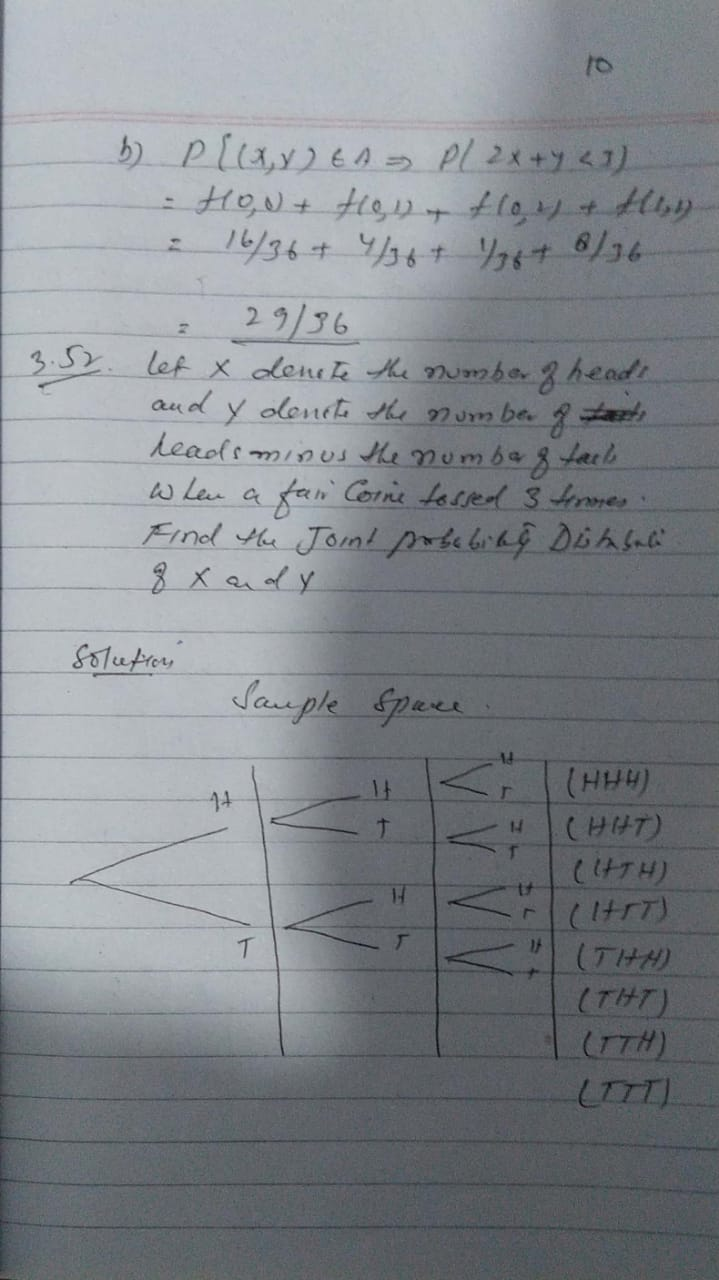 10
b) P[(X,Y) ∈ A ⇒ P(2x+y<3)
= f(0,0) + f(0,1) + f(0,2) + f(1,0)
= 16/36 + 4/36 + 1/36 + 8/36
= 29/36
3.52. Let X denote the number of heads
and y denote the number of
heads minus the number of tails
When a fair Coine tossed 3 times.
Find the Joint probability
of X and y
Solution
Sample Space.
H T H T H T H T H T H T H T
(HHH)
(HHT)
(HTH)
(HTT)
(THH)
(THT)
(TTH)
(TTT)